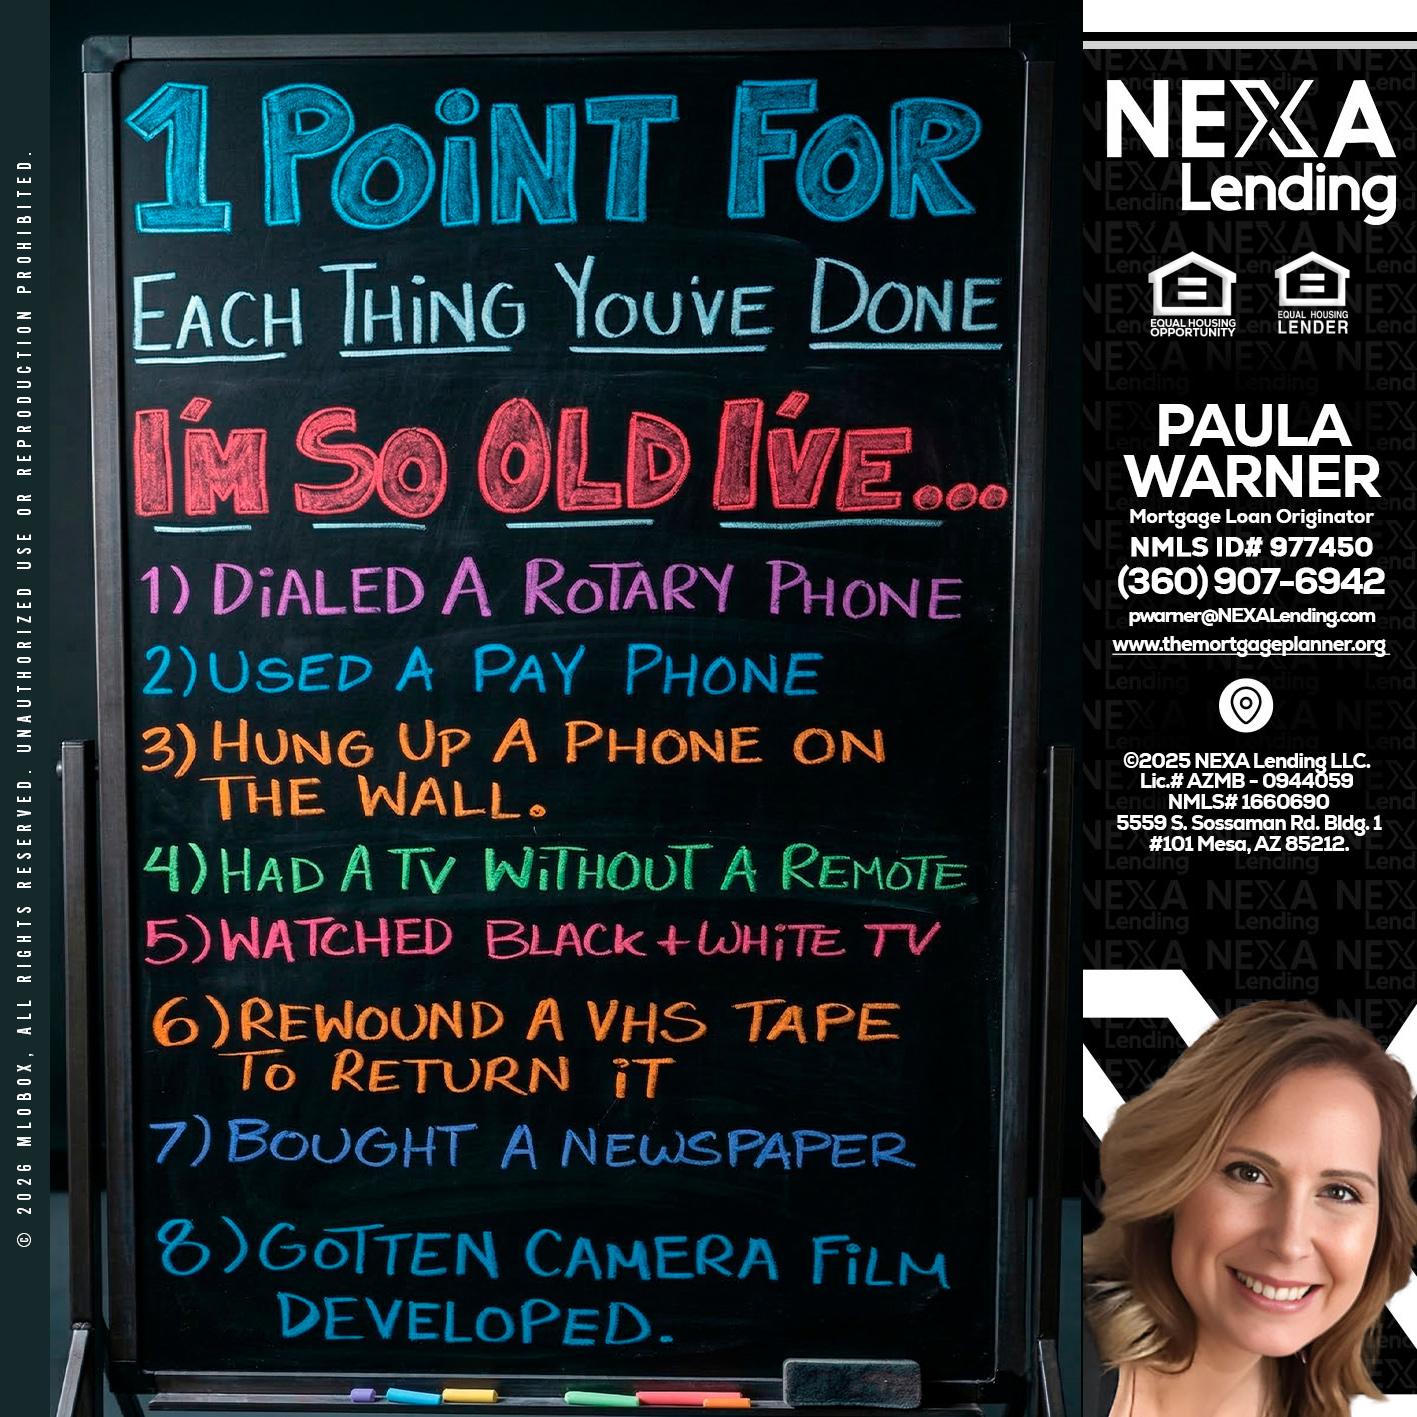 1 POINT FOR
EACH THING YOU'VE DONE
I'M SO OLD I'VE...
1) DIALED A ROTARY PHONE
2) USED A PAY PHONE
3) HUNG UP A PHONE ON
THE WALL.
4) HAD A TV WITHOUT A REMOTE
5) WATCHED BLACK + WHITE TV
6) REWOUND A VHS TAPE
TO RETURN IT
7) BOUGHT A NEWSPAPER
8) GOTTEN CAMERA FILM
DEVELOPED.
© 2026 MLOBOX, ALL RIGHTS RESERVED. UNAUTHORIZED USE OR REPRODUCTION PROHIBITED.
NEXA
Lending
EQUAL HOUSING
OPPORTUNITY
EQUAL HOUSING
LENDER
PAULA
WARNER
Mortgage Loan Originator
NMLS ID# 977450
(360) 907-6942
pwarner@NEXALending.com
www.themortgageplanner.org
©2025 NEXA Lending LLC.
Lic.# AZMB - 0944059
NMLS# 1660690
5559 S. Sossaman Rd. Bldg. 1
#101 Mesa, AZ 85212.